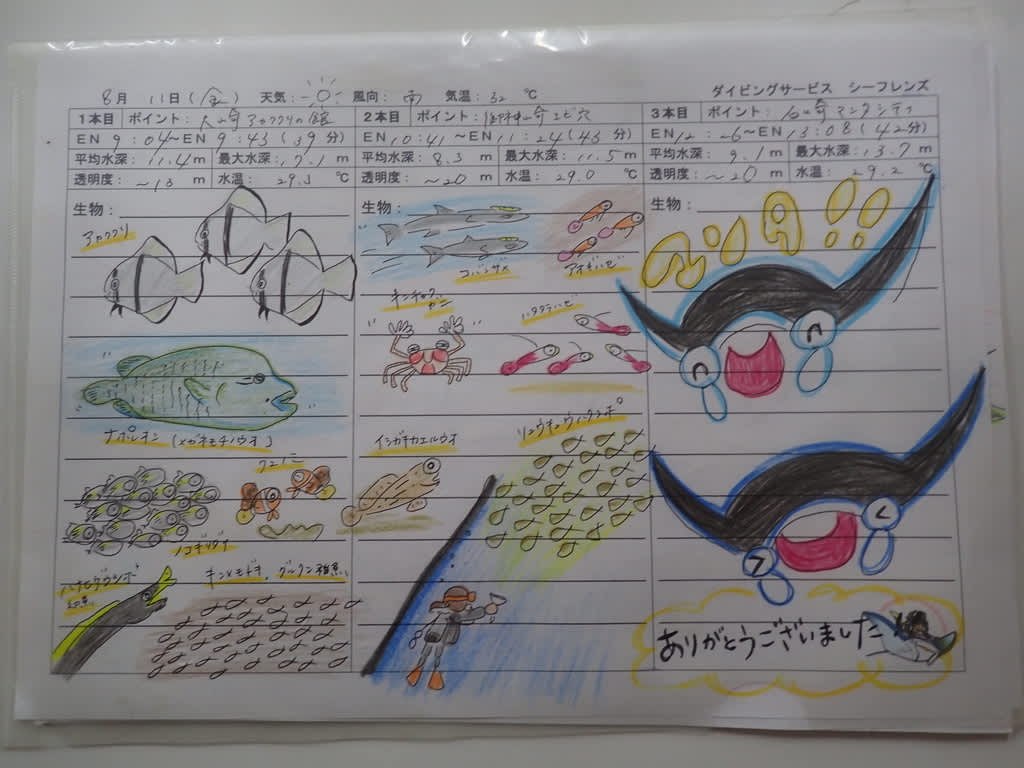 ダイビングサービス シーフレンズ
8月 11日(金) 天気: 風向: 南 気温: 32 ℃
1本目 ポイント: 大崎アカククリの館
EN 9:04~EN 9:43 (39分)
平均水深: 11.4m 最大水深: 17.1m
透明度: ~15m 水温: 29.3℃
生物:
アカククリ
ナポレオン(メガネモチノウオ)
クマノミ
ノコギリダイ
ハナヒゲウツボ
幼魚
キンメモドキ、グルクン稚魚
2本目 ポイント: 御神崎エビ穴
EN 10:41~EN 11:24 (43分)
平均水深: 8.3m 最大水深: 11.5m
透明度: ~20m 水温: 29.0℃
生物:
コバンザメ
アオギハゼ
キンチャク
ガニ
ハタタテハゼ
イシガキカエルウオ
リュウキュウハタンポ
3本目 ポイント: 石崎マンタシティ
EN 12:26~EN 13:08 (42分)
平均水深: 9.1m 最大水深: 13.7m
透明度: ~20m 水温: 29.2℃
生物:
マンタ!!
ありがとうございました